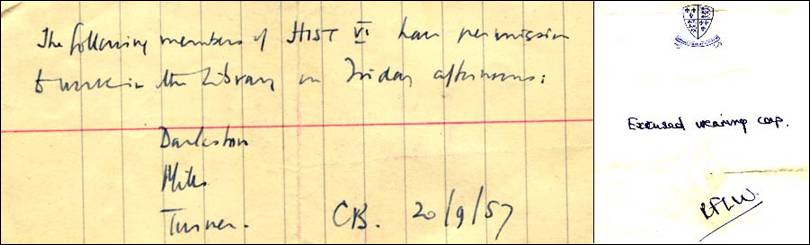 The following members of HIST VI have permission
to work in the Library on Friday afternoons:
Darlaston
Mills
Turner.
CB. 20/9/57
Excused wearing cap.
RFLW.